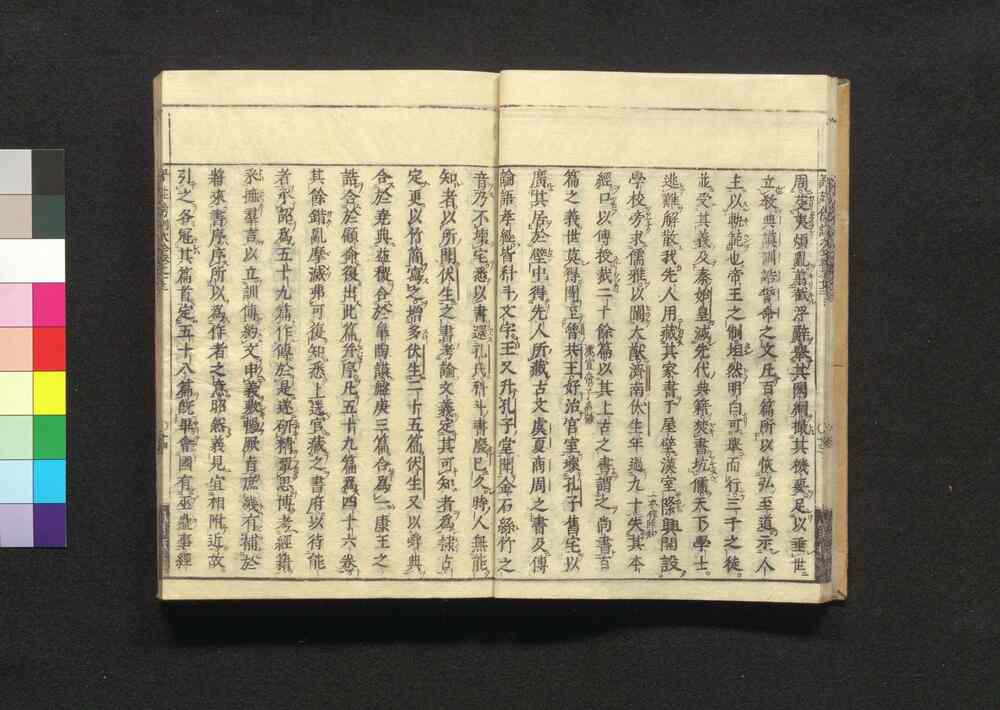 周芟夷煩亂剪截浮辭擧其宏綱撮其機要足以垂世
立教典謨訓誥誓命之文凡百篇所以恢弘至道示人
主以軌範也帝王之制坦然明白可擧而行三千之徒
並受其義及秦始皇滅先代典籍焚書坑儒天下學士
逃難解散我先人用藏其家書于屋壁漢室隆興開設
學校旁求儒雅以闡大猷濟南伏生年過九十失其本
經口以傳授裁二十餘篇以其上古之書謂之尚書百
篇之義世莫得聞至魯共王好治宮室壞孔子舊宅以
廣其居於壁中得先人所藏古文虞夏商周之書及傳
論語孝經皆科斗文字王又升孔子堂聞金石絲竹之
音乃不壞宅悉以書還孔氏科斗書廢已久時人無能
知者以所聞伏生之書考論文義定其可知者爲隷古
定更以竹簡寫之增多伏生二十五篇伏生又以舜典
合於堯典益稷合於皐陶謨盤庚三篇合爲一康王之
誥合於顧命復出此篇并序凡五十九篇爲四十六卷
其餘錯亂摩滅弗可復知悉上送官藏之書府以待能
者承詔爲五十九篇作傳於是遂研精覃思博考經籍
采摭羣言以立訓傳約文申義敷暢厥旨庶幾有補於
將來書序序所以爲作者之意昭然義見宜相附近故
引之各冠其篇首定五十八篇旣畢會國有巫蠱事經